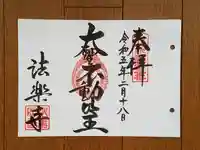 奉拝
令和五年二月十八日
大聖不動明王
法楽寺